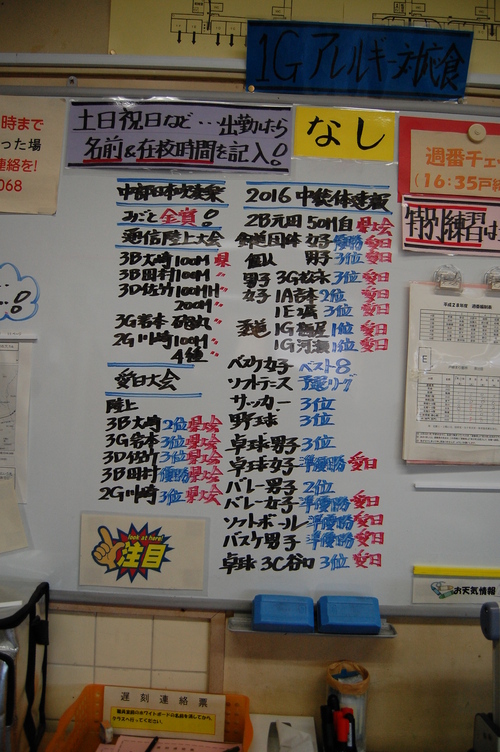 1G アレルギー対応食
時まで
った場
連絡を!
068
土日祝日など…出勤したら
名前&在校時間を記入!
なし
週番チェ
(16:35戸締
特別練習は
中部日本吹奏楽
みごと金賞!
通信陸上大会
3B大崎100M 県
3B田村100M 〃
3D佐竹100MH 〃
200M 〃
3G岩本 砲丸 〃
2G川崎100M 〃
4種 〃
愛日大会
陸上
3B大崎 2位 県大会
3G岩本 3位 県大会
3D佐竹 3位 県大会
3B田村 優勝 県大会
2G川崎 3位 県大会
2016 中小体連報
2B元田 50M自 県大会
剣道団体 女子 優勝 愛日
個人 男子 3位 愛日
男子 3G松本 3位 愛日
女子 1A吉本 2位 愛日
1E 3位 愛日
柔道 1G 1位 愛日
1G河瀬 1位 愛日
バスケ女子 ベスト8
ソフトテニス 予選リーグ
サッカー 3位
野球 3位
卓球男子 3位
卓球女子 準優勝 愛日
バレー男子 2位
バレー女子 準優勝 愛日
ソフトボール 準優勝 愛日
バスケ男子 準優勝 愛日
卓球 3C谷口 3位 愛日
look at here!
注目
E
お天気情報
遅刻連絡票